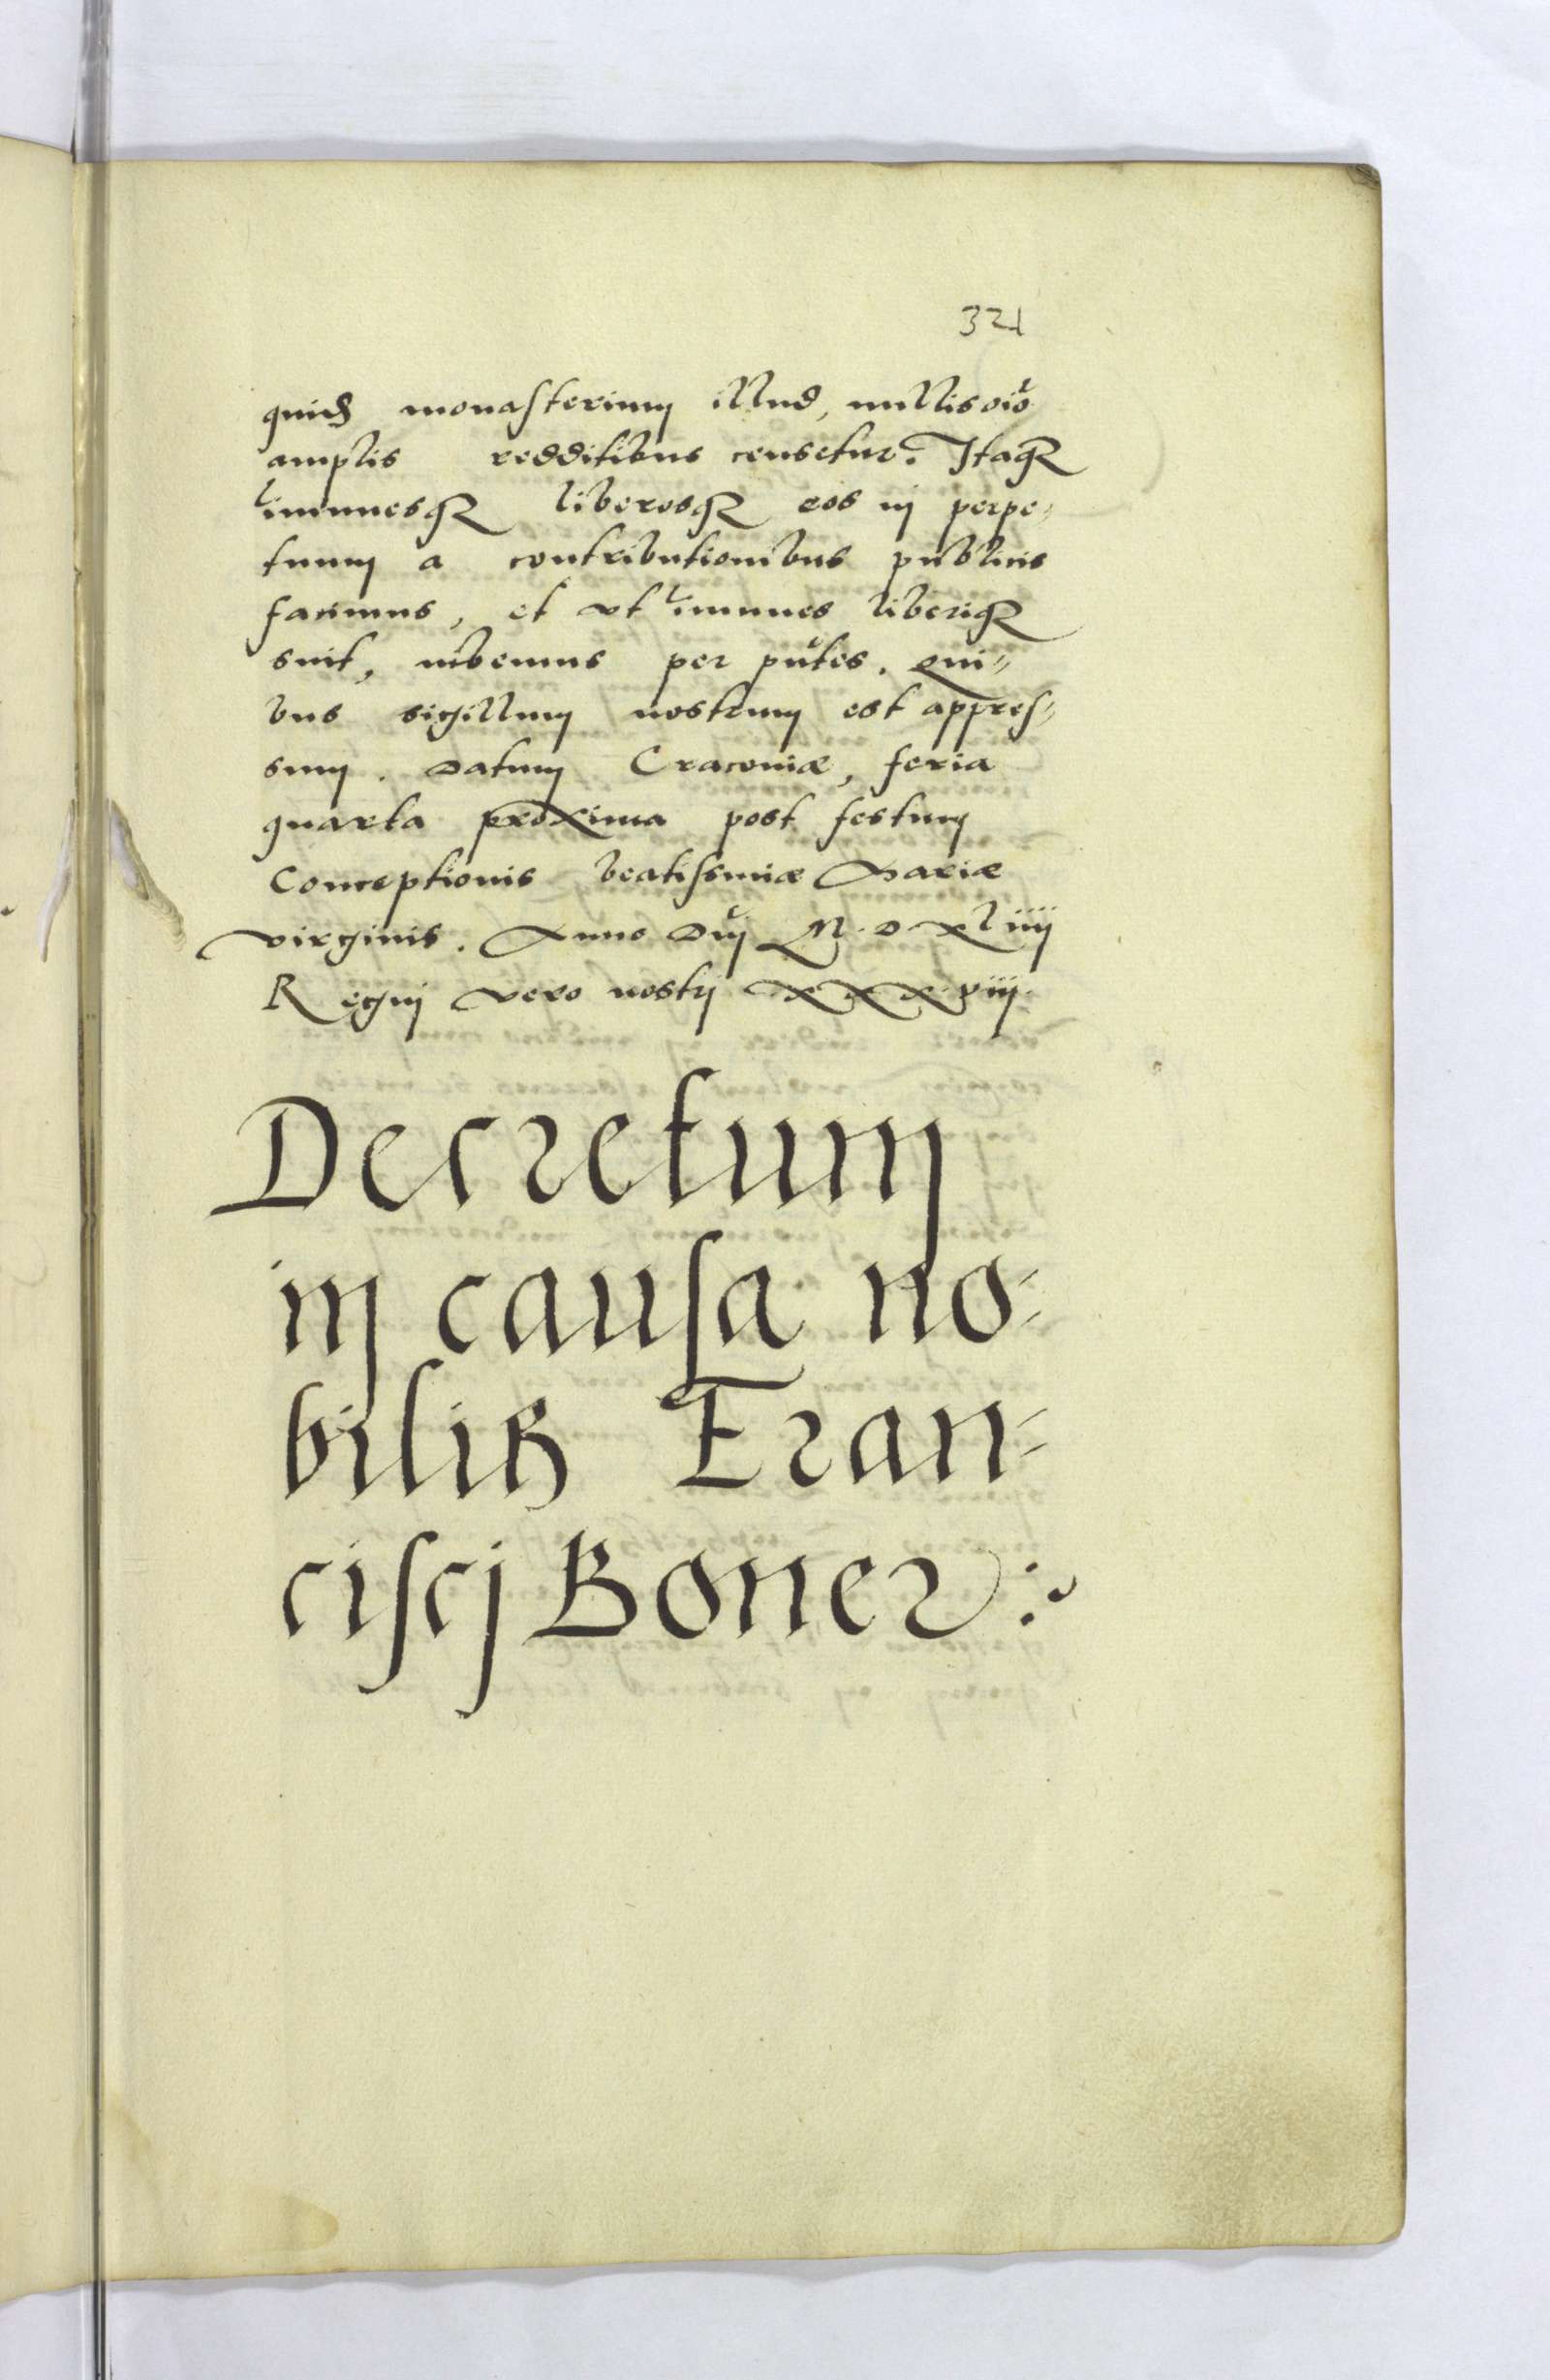 321
quidē monasterium illud, nullis oīo
amplis redditibus censetur. Itaqꝫ
im̄unesqꝫ liberosqꝫ eos in perpe-
tuum a contributionibus publicis
facimus, et vt im̄unes liberiqꝫ
sint, iubemus per pn̄tes. Qui-
bus sigillum nostrum est appres-
sum. Datum Cracouiæ, feria
quarta proxima post festum
Conceptionis beatissimæ Mariæ
virginis. Anno Dn̄i M.D.xliiij
Regni vero nostrj xxxviij.
Decretum
in causa no-
bilis Fran-
ciscj Boner